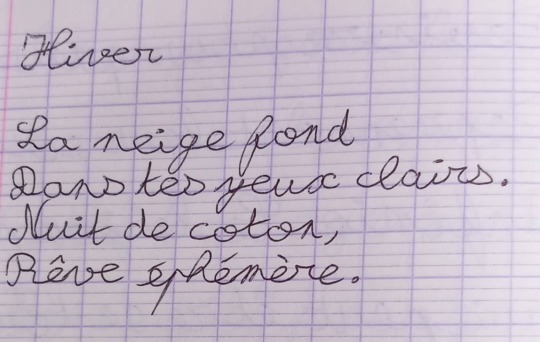 Hiver
La neige fond
Dans tes yeux clairs.
Nuit de coton,
Rêve éphémère.